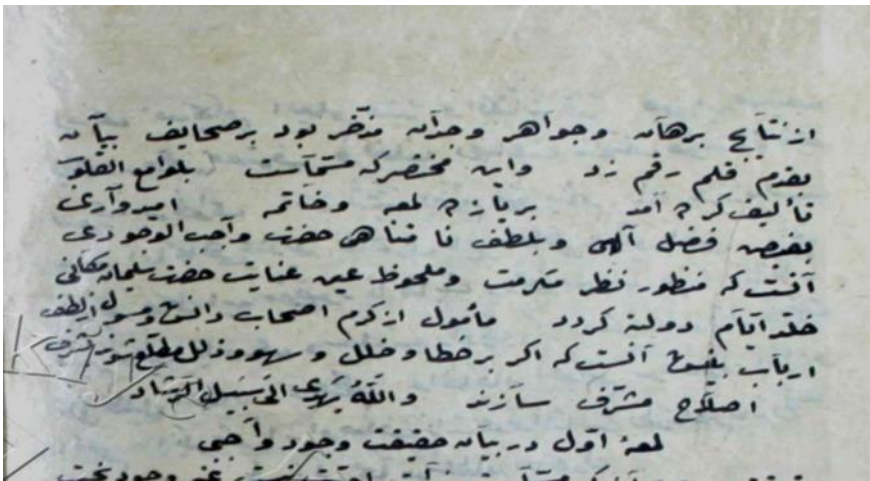 از نتایج برهان وجواهر وجدان مدّخر بود بر صحایف بیان
بقدم قلم رقم زد واین مختصر که مسمّاست بلوامع القلوب
تألیف کرده آمد بریازده لمعه وخاتمه امیدواری
بفیض فضل آلهی وبلطف نا متناهی حضرت واجب الوجودی
آنست که منظور نظر مکرمت وملحوظ عین عنایت حضرت سلیمان مکانی
خلّد ایّام دولته کردد مأمول از کرم اصحاب دانش ومسول از لطف
ارباب بینش آنست که اکر بر خطا وخلل وسهو وزلل مطلع شوند بشرف
اصلاح مشرّف سازند واللّه یهدی الی سبیل الرّشاد
لمعهٔ اوّل در بیان حقیقت وجود واجبی